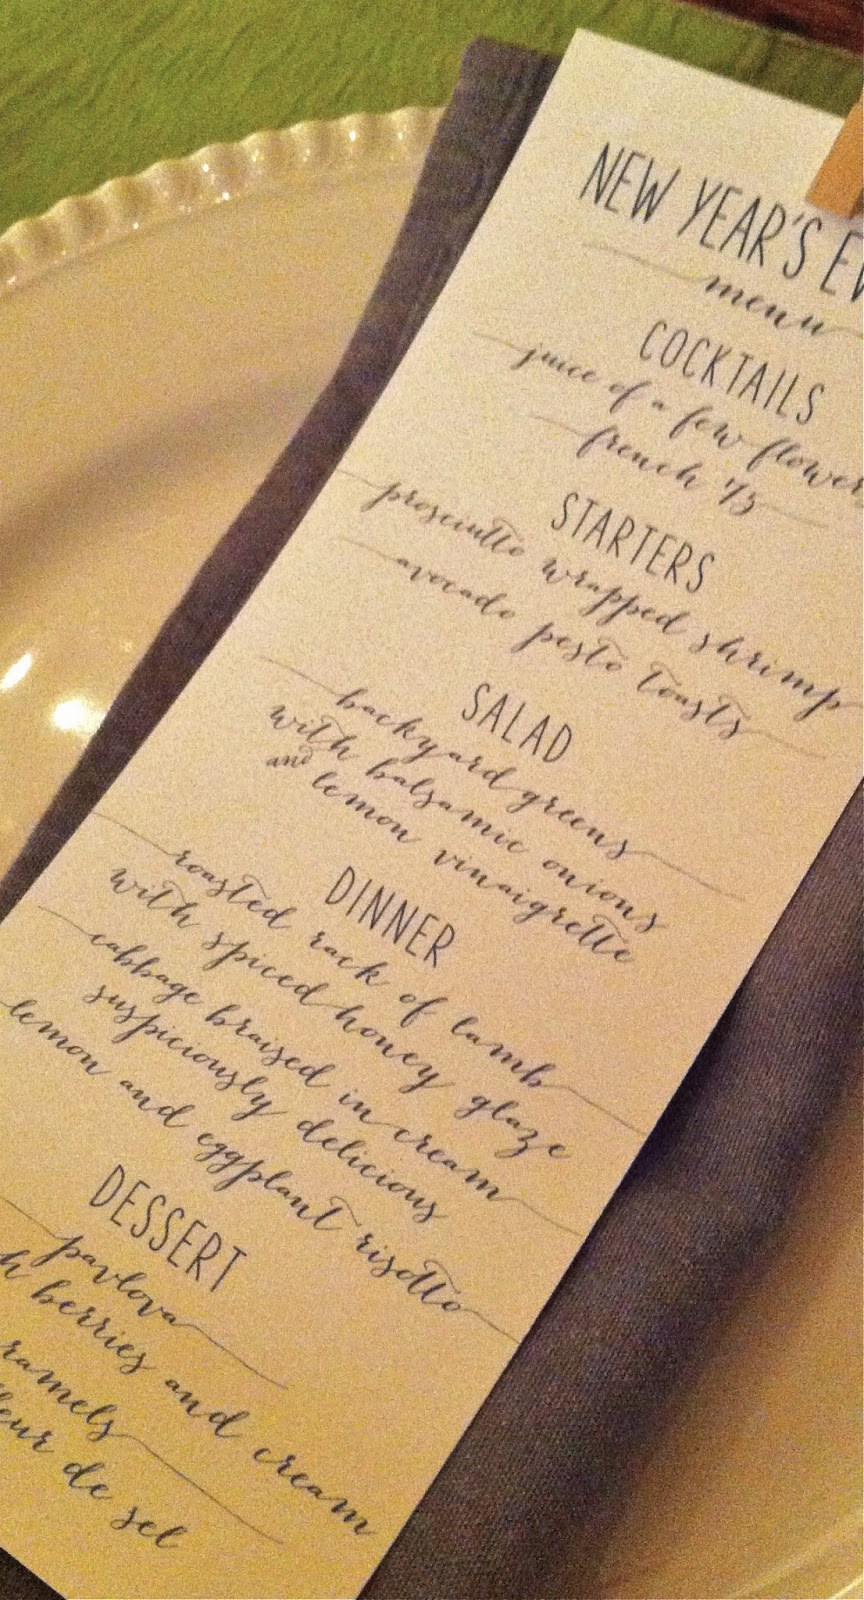 NEW YEAR'S EV
menu
COCKTAILS
juice of a few flower
french 75
STARTERS
prosciutto wrapped shrimp
avocado pesto toasts
SALAD
backyard greens
with balsamic onions
and lemon vinaigrette
DINNER
roasted rack of lamb
with spiced honey glaze
cabbage braised in cream
suspiciously delicious
lemon and eggplant risotto
DESSERT
pavlova
h berries and cream
ramels
leur de sel